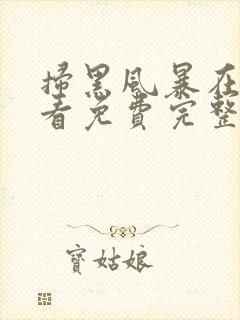 掃黑風暴在
看免費完整
寶姑娘